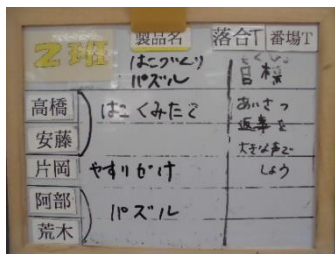 2班
製品名
落合T 番場T
はこづくり
パズル
目標
高橋
安藤
はこくみたて
あいさつ
返事を
大きな声で
しょう
片岡
やすりがけ
阿部
荒木
パズル